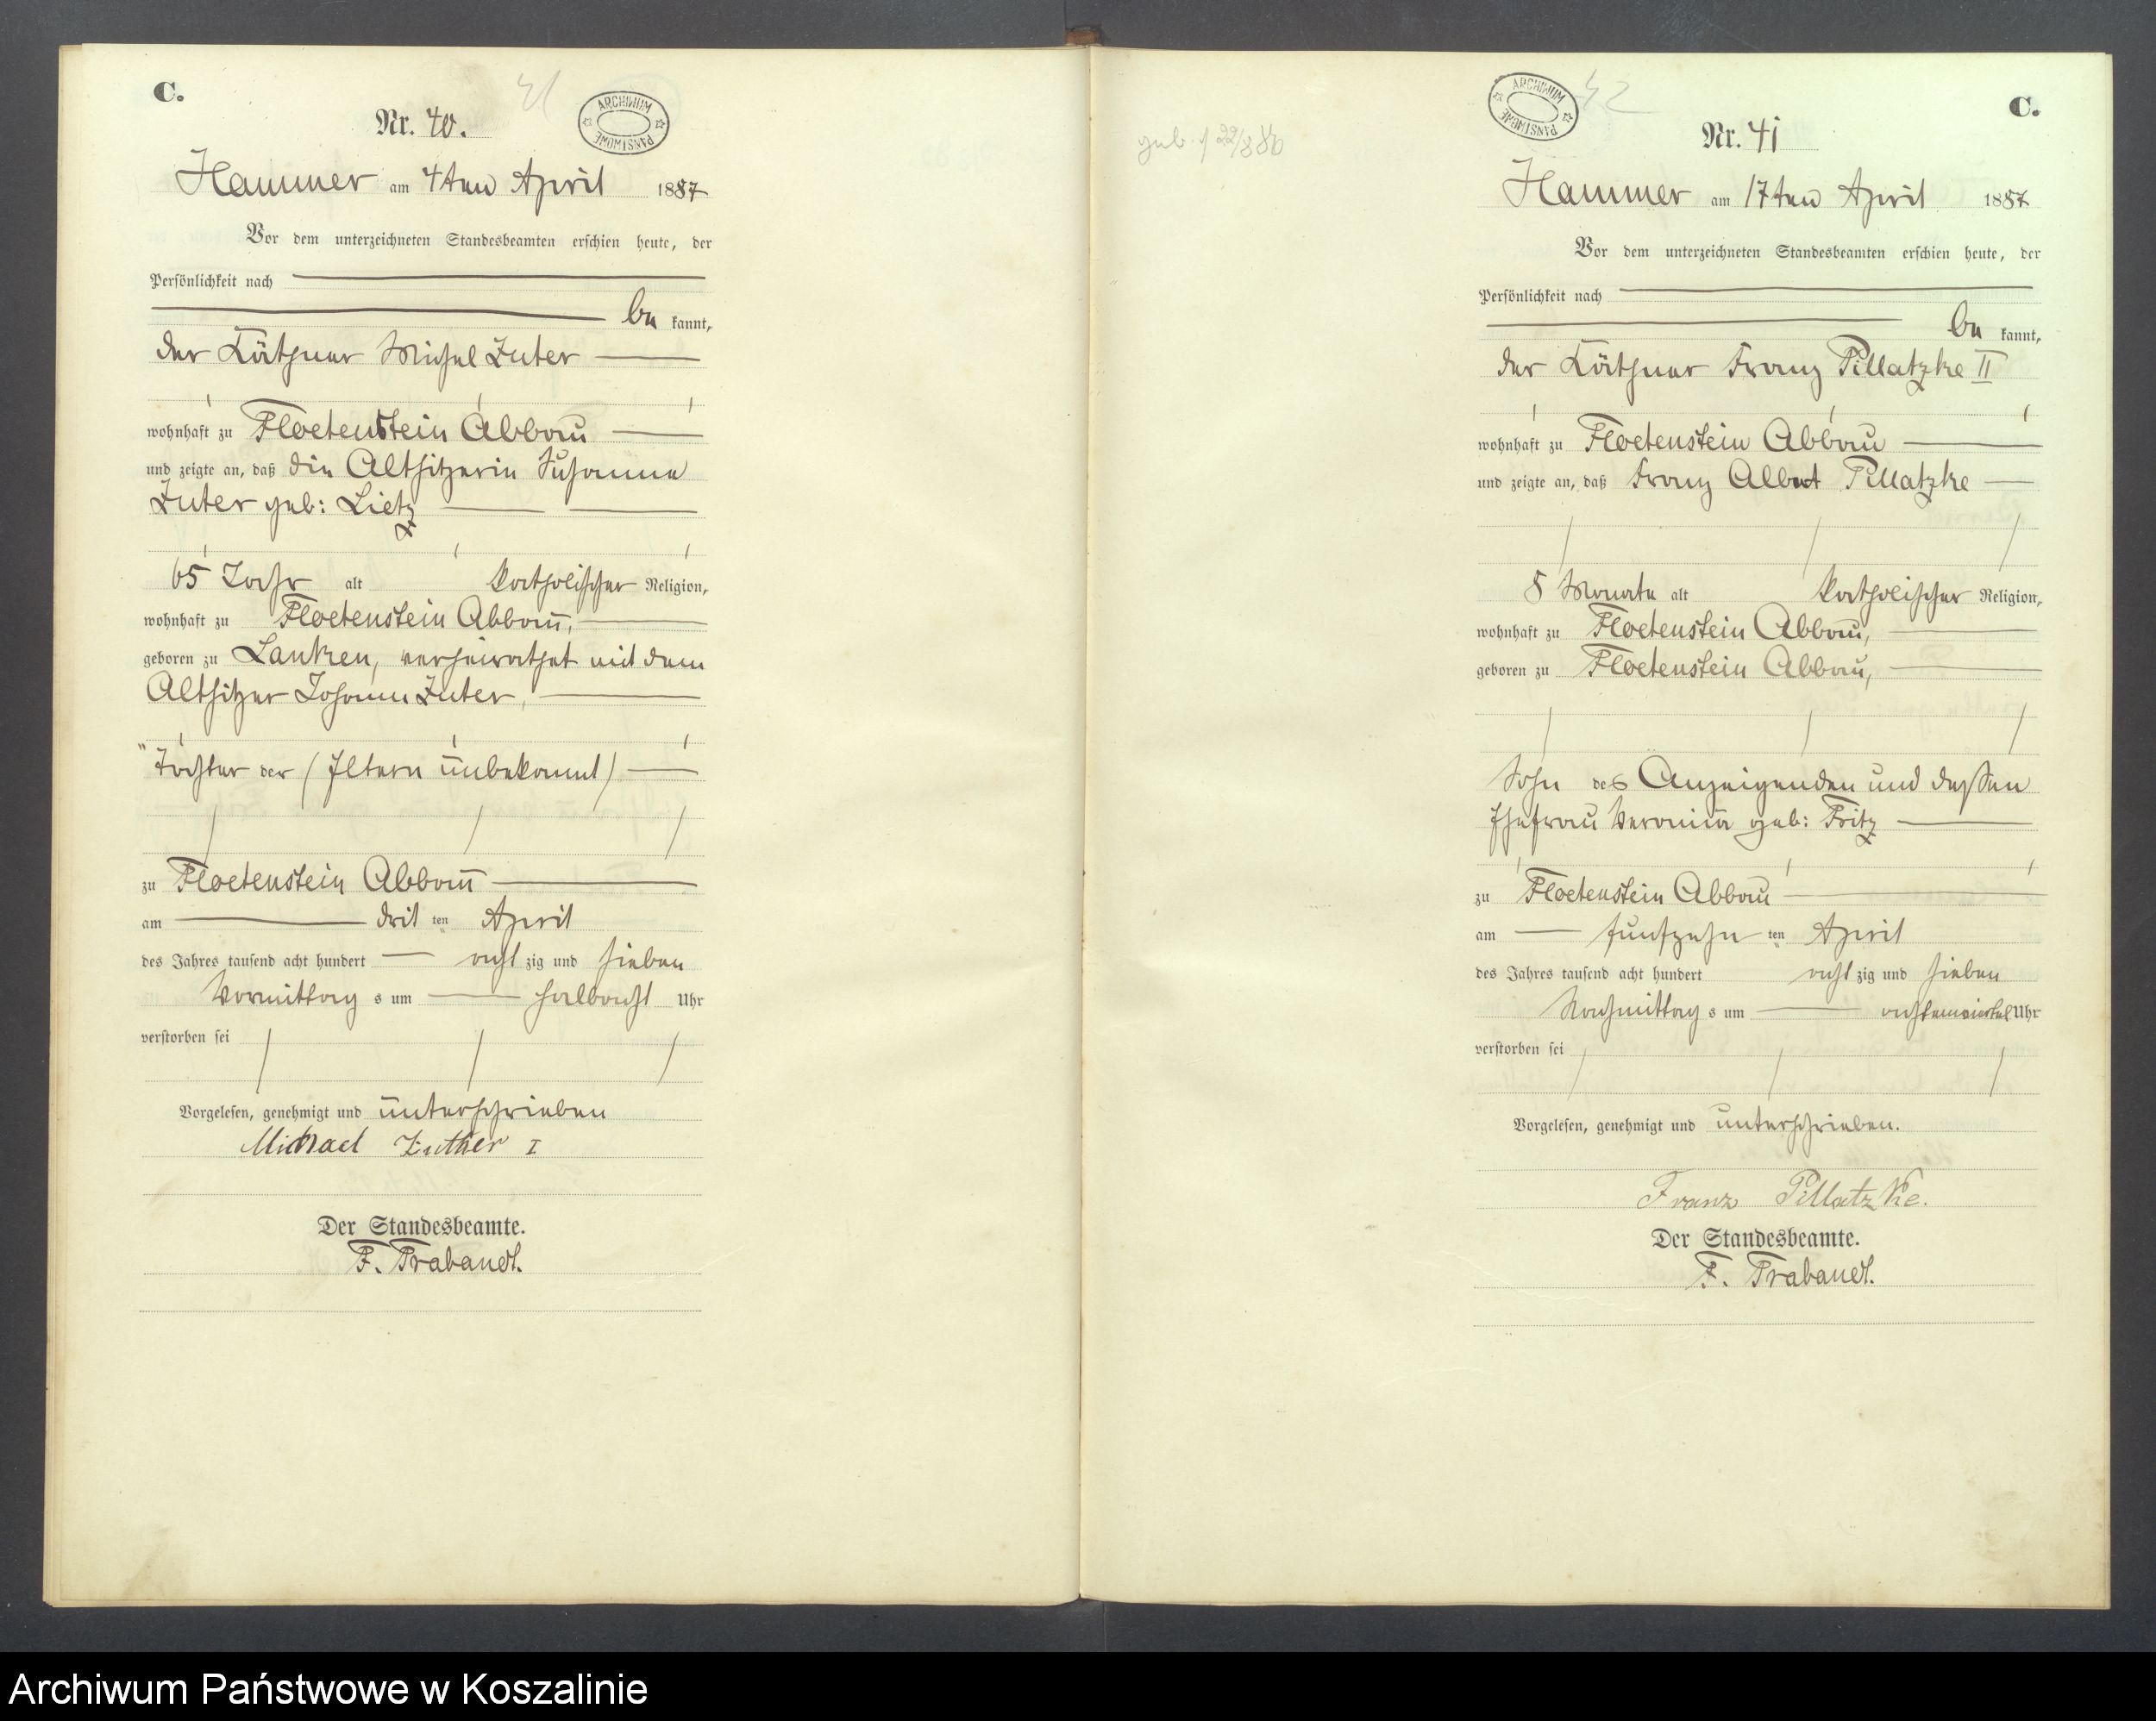 C.
41
ARCHIWUM PAŃSTWOWE
Nr. 40.
Hammer am 4ten April 1887
Vor dem unterzeichneten Standesbeamten erschien heute, der
Persönlichkeit nach
be kannt,
der Käthner Michel Zuter
wohnhaft zu Floetenstein Abbau
und zeigte an, daß die Altsitzerin Susanna
Zuter geb: Lietz
65 Jahr alt katholischer Religion,
wohnhaft zu Floetenstein Abbau,
geboren zu Lanken, verheirathet mit dem
Altsitzer Johann Zuter,
Tochter der (Eltern unbekannt)
zu Floetenstein Abbau
am drit ten April
des Jahres tausend acht hundert acht zig und sieben
Vormittag s um halbacht Uhr
verstorben sei
Vorgelesen, genehmigt und unterschrieben
Michael Zuther I
Der Standesbeamte.
F. Trabandt.
geb. 22/8 86
ARCHIWUM PAŃSTWOWE
42
C.
Nr. 41
Hammer am 17ten April 1887
Vor dem unterzeichneten Standesbeamten erschien heute, der
Persönlichkeit nach
be kannt,
der Käthner Franz Pillatzke II
wohnhaft zu Floetenstein Abbau
und zeigte an, daß Franz Albert Pillatzke
8 Monate alt katholischer Religion,
wohnhaft zu Floetenstein Abbau,
geboren zu Floetenstein Abbau,
Sohn des Anzeigenden und dessen
Ehefrau Veronica geb: Fritz
zu Floetenstein Abbau
am funfzehn ten April
des Jahres tausend acht hundert acht zig und sieben
Nachmittag s um Uhr
verstorben sei
Vorgelesen, genehmigt und unterschrieben.
Franz Pillatzke.
Der Standesbeamte.
F. Trabandt.
Archiwum Państwowe w Koszalinie